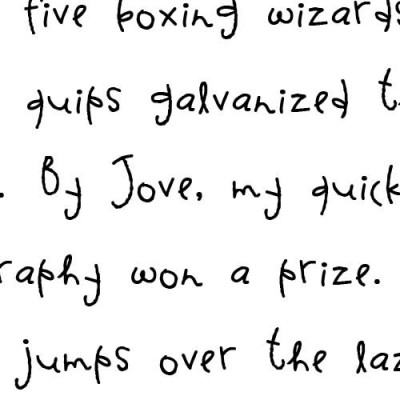 five boxing wizards
quips galvanized t
. By Jove, my quick
raphy won a prize.
jumps over the laz